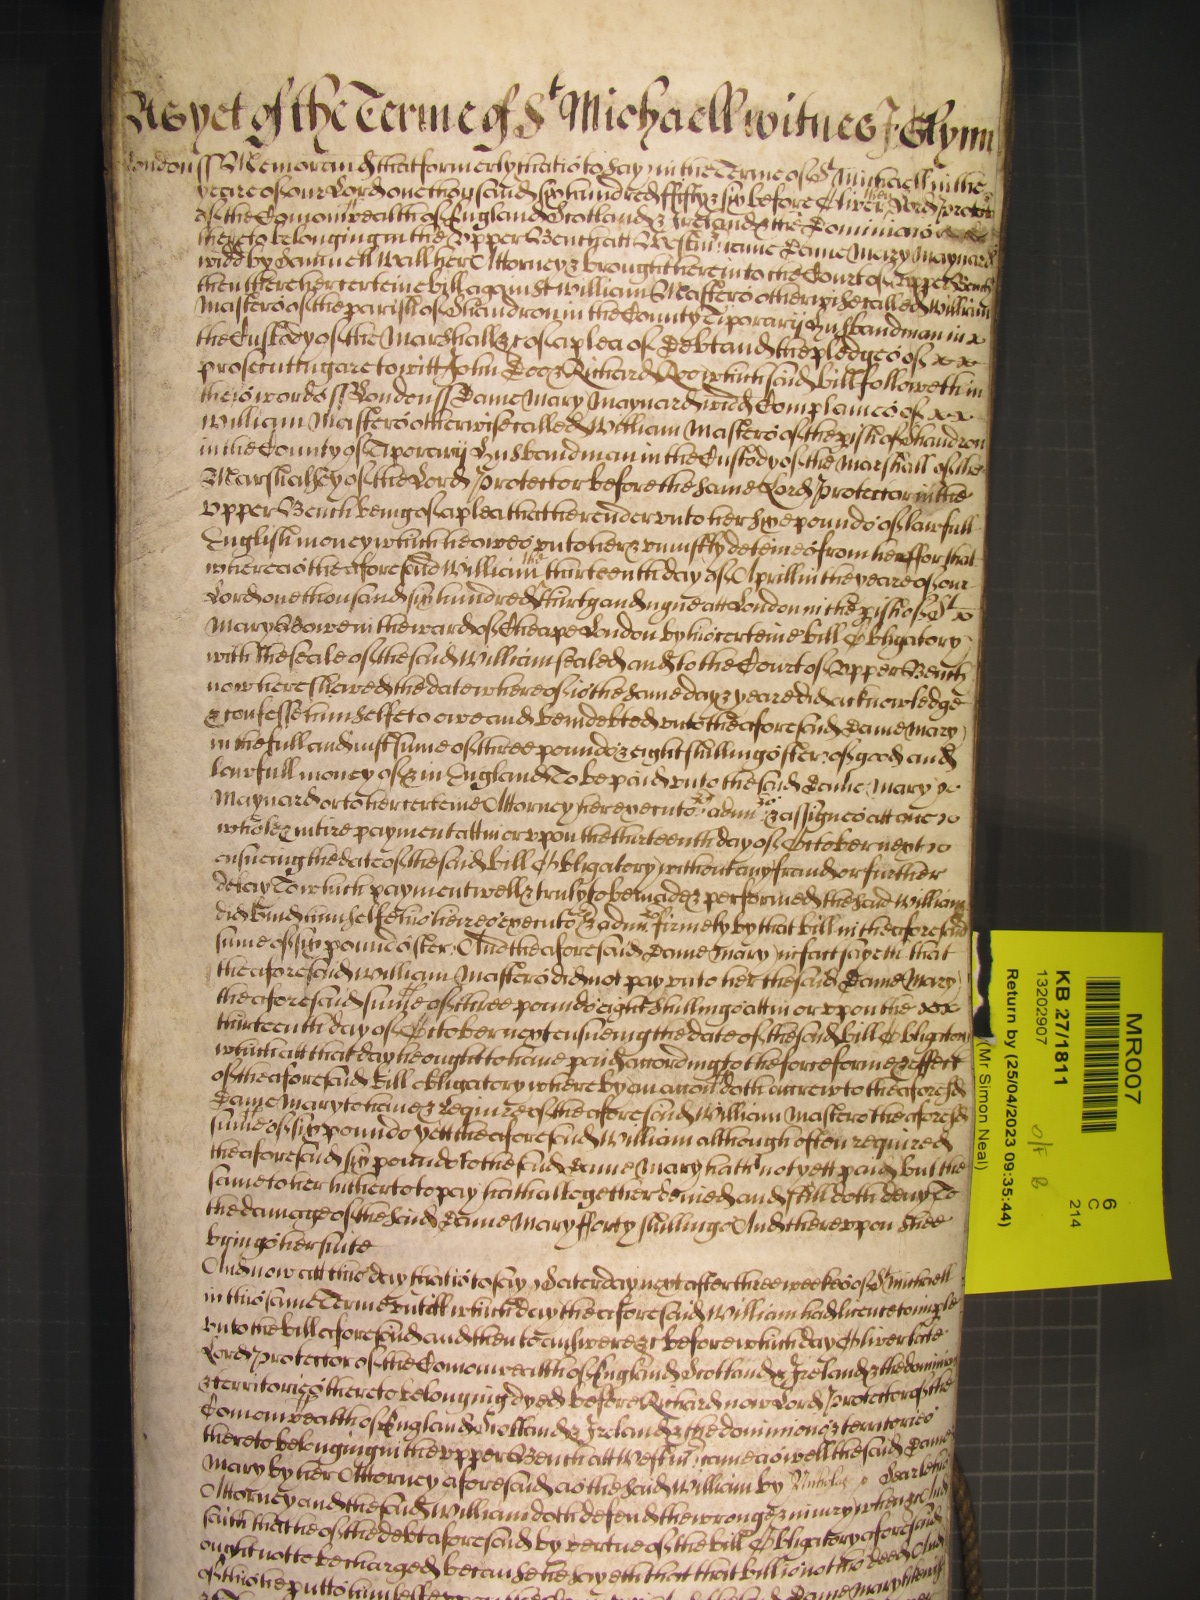 As yet of the Terme of St Michaell witnes J Glynn
London ss Memorand that formerly that is to say in the Terme of St Michaell in the
yeare of our Lord one thousand six hundred fifty & six before Oliver then Lord Protector
of the Comonwealth of England Scotland & Ireland & the Dominions
thereto belonging in the Upper Bench att Westm came Dame Mary Maynard
widd by Samuell Wall her Attorney & brought here into the Court of Upper Bench
then there her certeine bill against William Masters otherwise called William
Masters of the parish of Shandron in the County Tiporary Husbandman in
the Custody of the Marshall &c of a plea of Debt and the pledges of
prosecuting are to witt John Doo & Richard Roo which said bill followeth in
theis words ss London ss Dame Mary Maynard widd Complaines of
William Masters otherwise called William Masters of the pish of Shandron
in the County of Tiporary Husbandman in the Custody of the Marshall of the
Marshalsey of the Lord Protector before the same Lord Protector in the
Upper Bench being of a plea that he render unto her six pounds of lawfull
English money which he owes unto her & uniustly deteines from her ffor that
whereas the aforesaid William the thirteenth day of Aprill in the yeare of our
Lord one thousand six hundred fforty and nyne att London in the pish of St
Mary Bowe in the ward of Cheape London by his certeine bill Obligatory
with the seale of the said William sealed and to the Court of Upper Bench
now here shewed the date whereof is the same day & yeare did acknowledge
& confesse himselfe to owe and be indebted unto the aforesaid Dame Mary
in the full and iust sume of three pounds & eight shillings ster of good and
lawfull money of & in England To be paid unto the said Dame Mary
Maynard or to her certeine Attorney her executors admrs & assignes att one
whole & intire payment att in or upon the thirteenth day of October next
ensueing the date of the said bill Obligatory without any fraud or further
delay To which payment well & truly to be made & performed the said William
did bind himselfe his heires executors & admrs firmely by that bill in the aforesaid
sume of six pounds ster And the aforesaid Dame Mary in fact sayeth that
the aforesaid William Masters did not pay unto her the said Dame Mary
the aforesaid sume of three pounds eight shillings att in or upon the
thirteenth day of October next ensueing the date of the said bill Obligatory
which att that day he ought to have paid according to the force forme & effect
of the aforesaid bill obligatory whereby an accon doth accrew to the aforesd
Dame Mary to have & require of the aforesaid William Masters the aforesd
sume of six pounds yett the aforesaid William although often required
the aforesaid six pounds to the said Dame Mary hath not yett paid but the
same to her hitherto to pay hath altogether denied and still doth deny To
the damage of the said Dame Mary fforty shillings And thereupon shee
bringes her suite
And now att this day that is to say Saterday next after three weekes of St Michaell
in this same Terme untill which day the aforesaid William had licence to imple
unto the bill aforesaid and then to answere &c before which day Oliver late
Lord Protector of the Comonwealth of England Scotland & Ireland & the dominions
& territories thereto belonging dyed before Richard now Lord Protector of the
Comonwealth of England Scotland & Ireland & the dominions & territories
thereto belonging in the upper Bench att Westm came aswell the said Dame
Mary by her Attorney aforesaid as the said William by Nicholas
Attorney and the said William doth defend the wronge & iniury when &c And
saith that he of the debt aforesaid by vertue of the bill Obligatory aforesaid
ought not to be charged because he sayeth that that bill is not his deed And
of this he putts himselfe upon the Dame Mary likewise
MR007
KB 27/1811
13202907
6
C
214
O/F
B
Return by (25/04/2023 09:35:44)
(Mr Simon Neal)